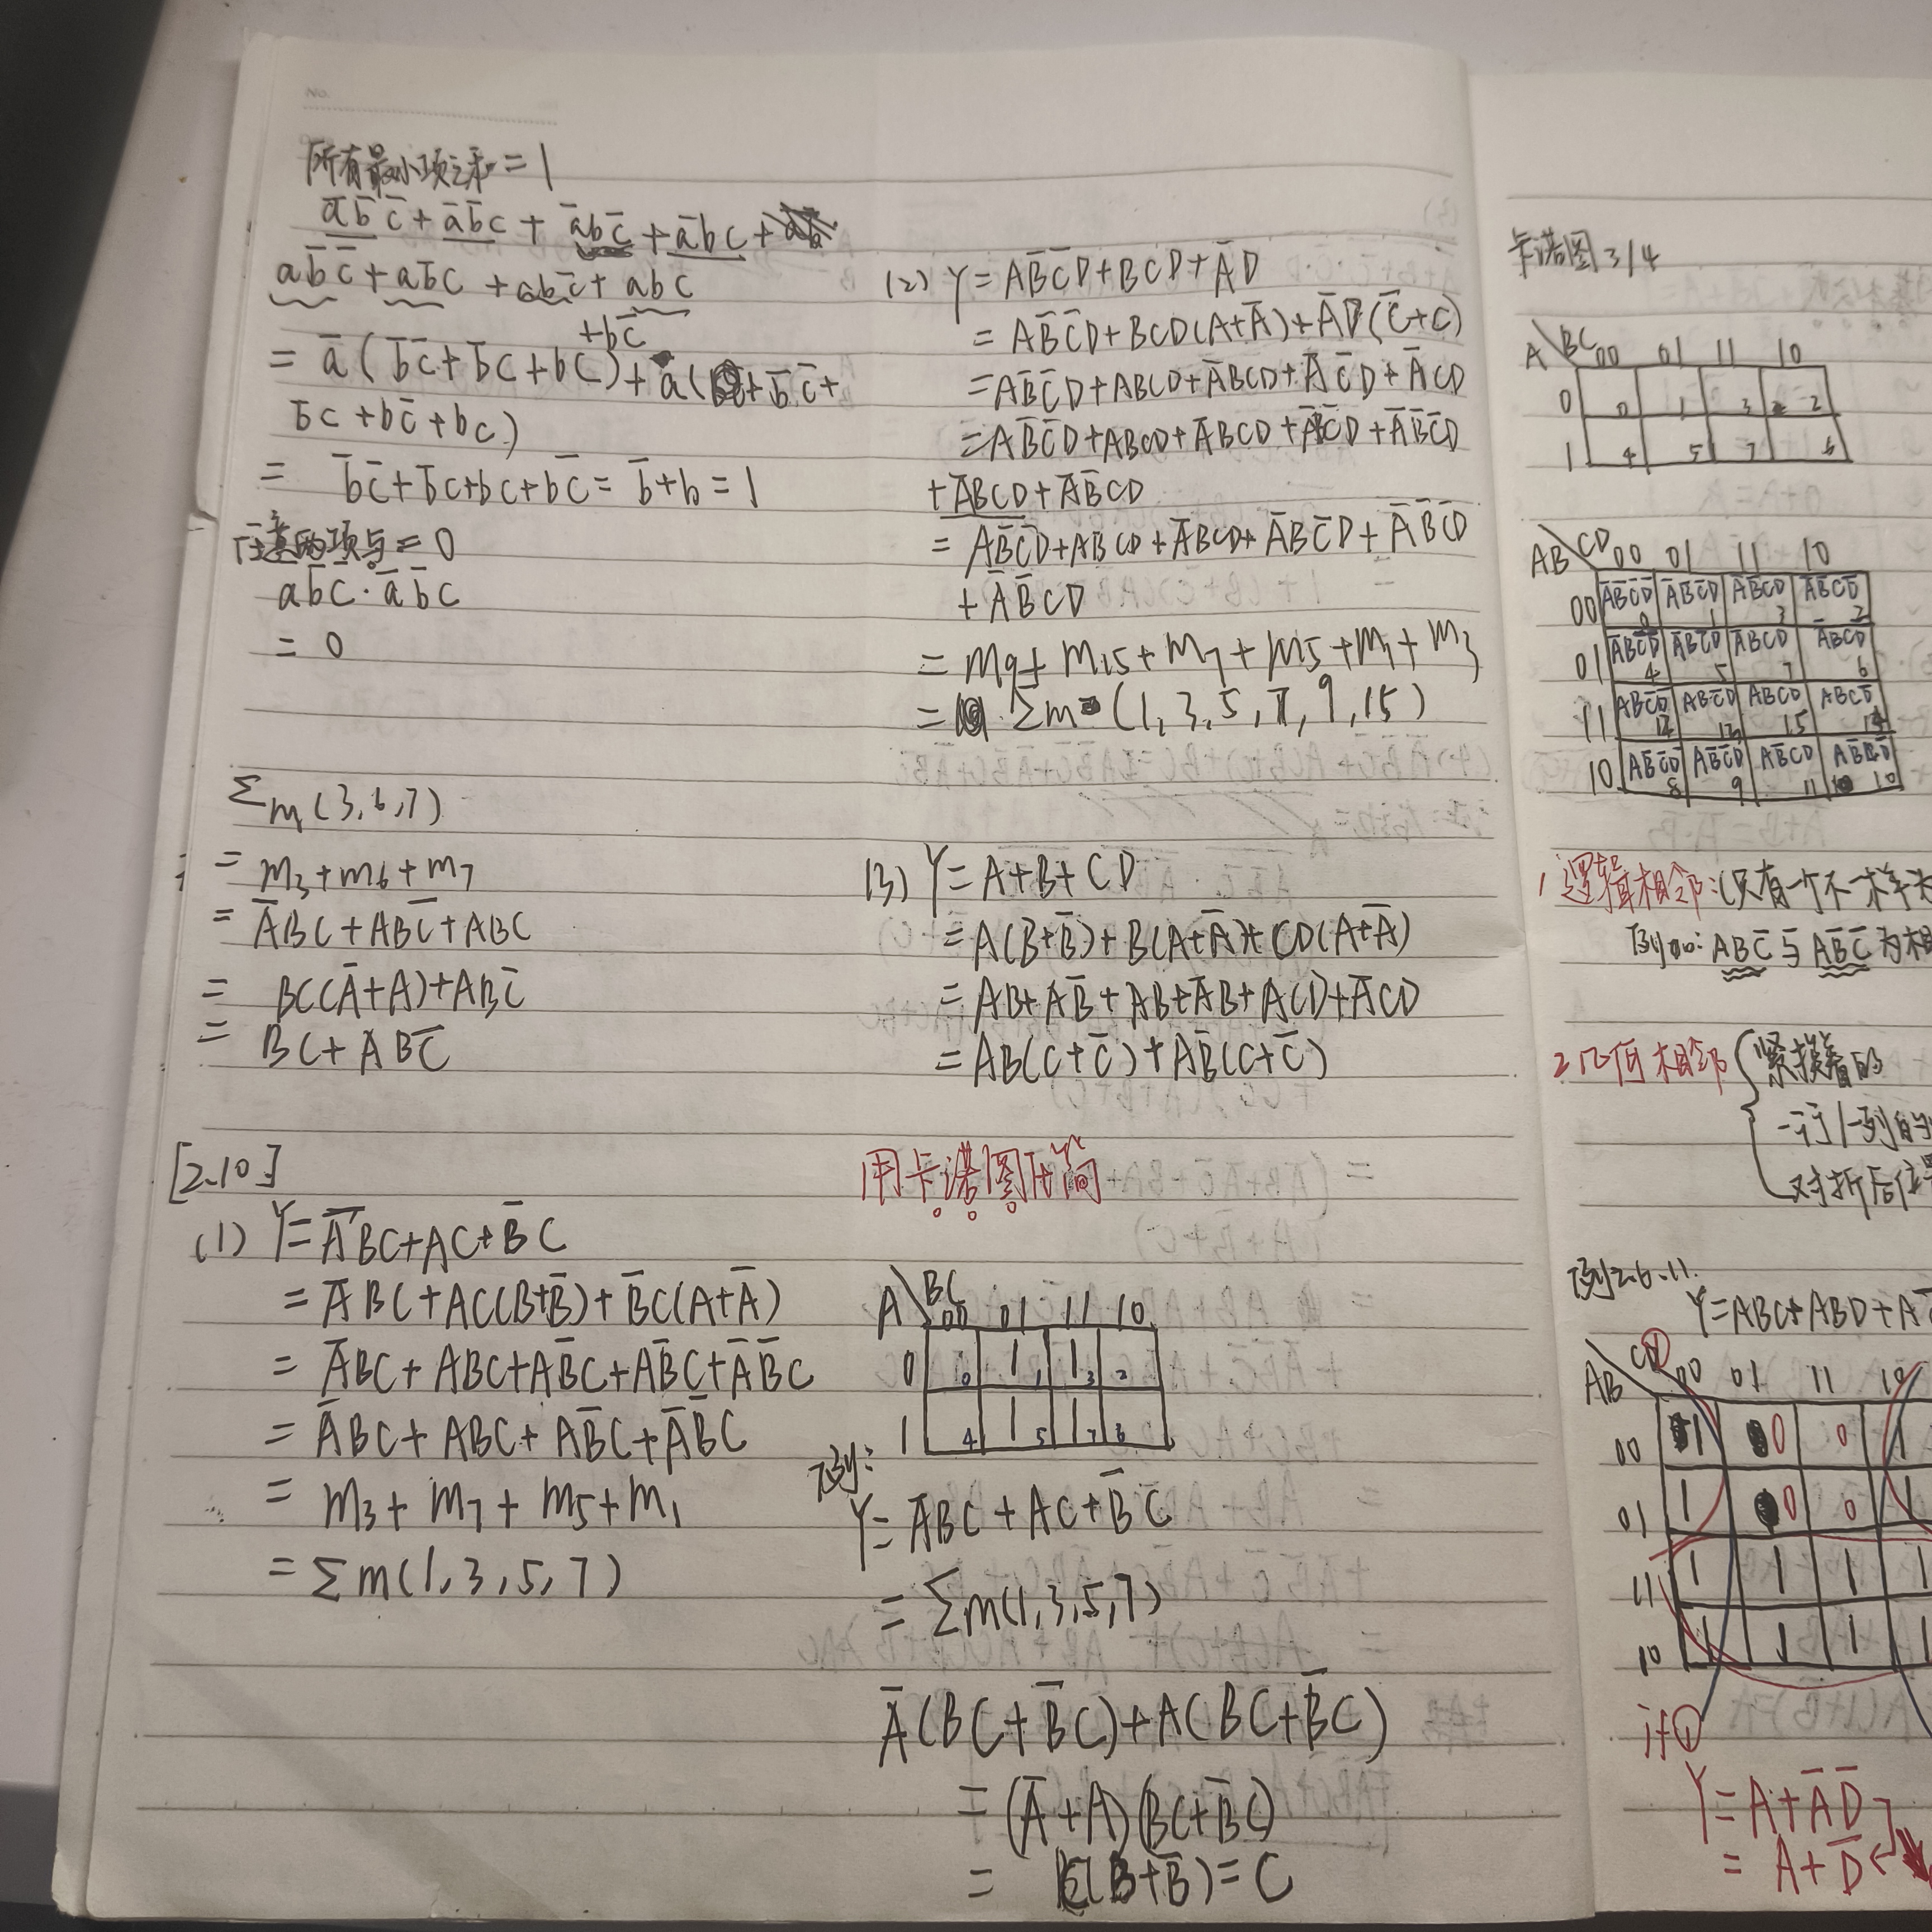 No.
所有最小项之和=1
a̅b̅c̅+a̅b̅c+a̅bc̅+a̅bc+
ab̅c̅+ab̅c+abc̅+abc
+bc̅
=a̅(b̅c̅+b̅c+bc)+a(b̅c̅+
b̅c+bc̅+bc)
=b̅c̅+b̅c+bc+bc̅=b̅+b=1
任意两项与=0
ab̅c̅·a̅b̅c
=0
Σm(3,6,7)
=m₃+m₆+m₇
=A̅BC+ABC̅+ABC
=BC(A̅+A)+ABC̅
=BC+ABC̅
[2.10]
(1) Y=A̅BC+AC+B̅C
=A̅BC+AC(B+B̅)+B̅C(A+A̅)
=A̅BC+ABC+AB̅C+AB̅C+A̅B̅C
=A̅BC+ABC+AB̅C+A̅B̅C
=m₃+m₇+m₅+m₁
=Σm(1,3,5,7)
(2) Y=AB̅C̅D+BCD+A̅D
=AB̅C̅D+BCD(A+A̅)+A̅D(C̅+C)
=AB̅C̅D+ABCD+A̅BCD+A̅C̅D+A̅CD
=AB̅C̅D+ABCD+A̅BCD+A̅BC̅D+A̅B̅C̅D
+A̅BCD+A̅B̅CD
=AB̅C̅D+ABCD+A̅BCD+A̅BC̅D+A̅B̅C̅D
+A̅B̅CD
=m₉+m₁₅+m₇+m₅+m₁+m₃
=Σm(1,3,5,7,9,15)
(3) Y=A+B+CD
=A(B+B̅)+B(A+A̅)+CD(A+A̅)
=AB+AB̅+AB+A̅B+ACD+A̅CD
=AB(C+C̅)+AB̅(C+C̅)
用卡诺图化简
A\BC 00 01 11 10
0 0 1 1 1 3 2
1 4 1 5 1 7 6
例:
Y=A̅BC+AC+B̅C
=Σm(1,3,5,7)
A̅(BC+B̅C)+A(BC+B̅C)
=(A̅+A)(BC+B̅C)
=C(B+B̅)=C
卡诺图3/4
A\BC 00 01 11 10
0 0 1 3 2
1 4 5 7 6
AB\CD 00 01 11 10
00 A̅B̅C̅D̅ A̅B̅C̅D A̅B̅CD A̅B̅CD̅
0 1 3 2
01 A̅BC̅D̅ A̅BC̅D A̅BCD A̅BCD̅
4 5 7 6
11 ABC̅D̅ ABC̅D ABCD ABCD̅
12 13 15 14
10 AB̅C̅D̅ AB̅C̅D AB̅CD AB̅CD̅
8 9 11 10
1 逻辑相邻:(只有一个不一样
例如:ABC̅与AB̅C̅为相
2 几何相邻
紧挨着的
一行/一列的
对折后位置
例2.6.11.
Y=ABC+ABD+A
AB\CD 00 01 11 10
00 1 0 0 1
01 1 0 0
11 1 1 1 1
10 1 1 1 1
if①
Y=A+A̅D̅
=A+D̅